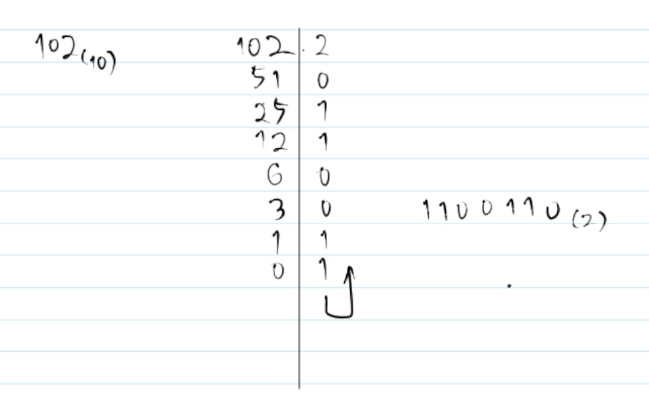 102(10) 102 : 2
51 0
25 1
12 1
6 0
3 0 1100110(2)
1 1
0 1